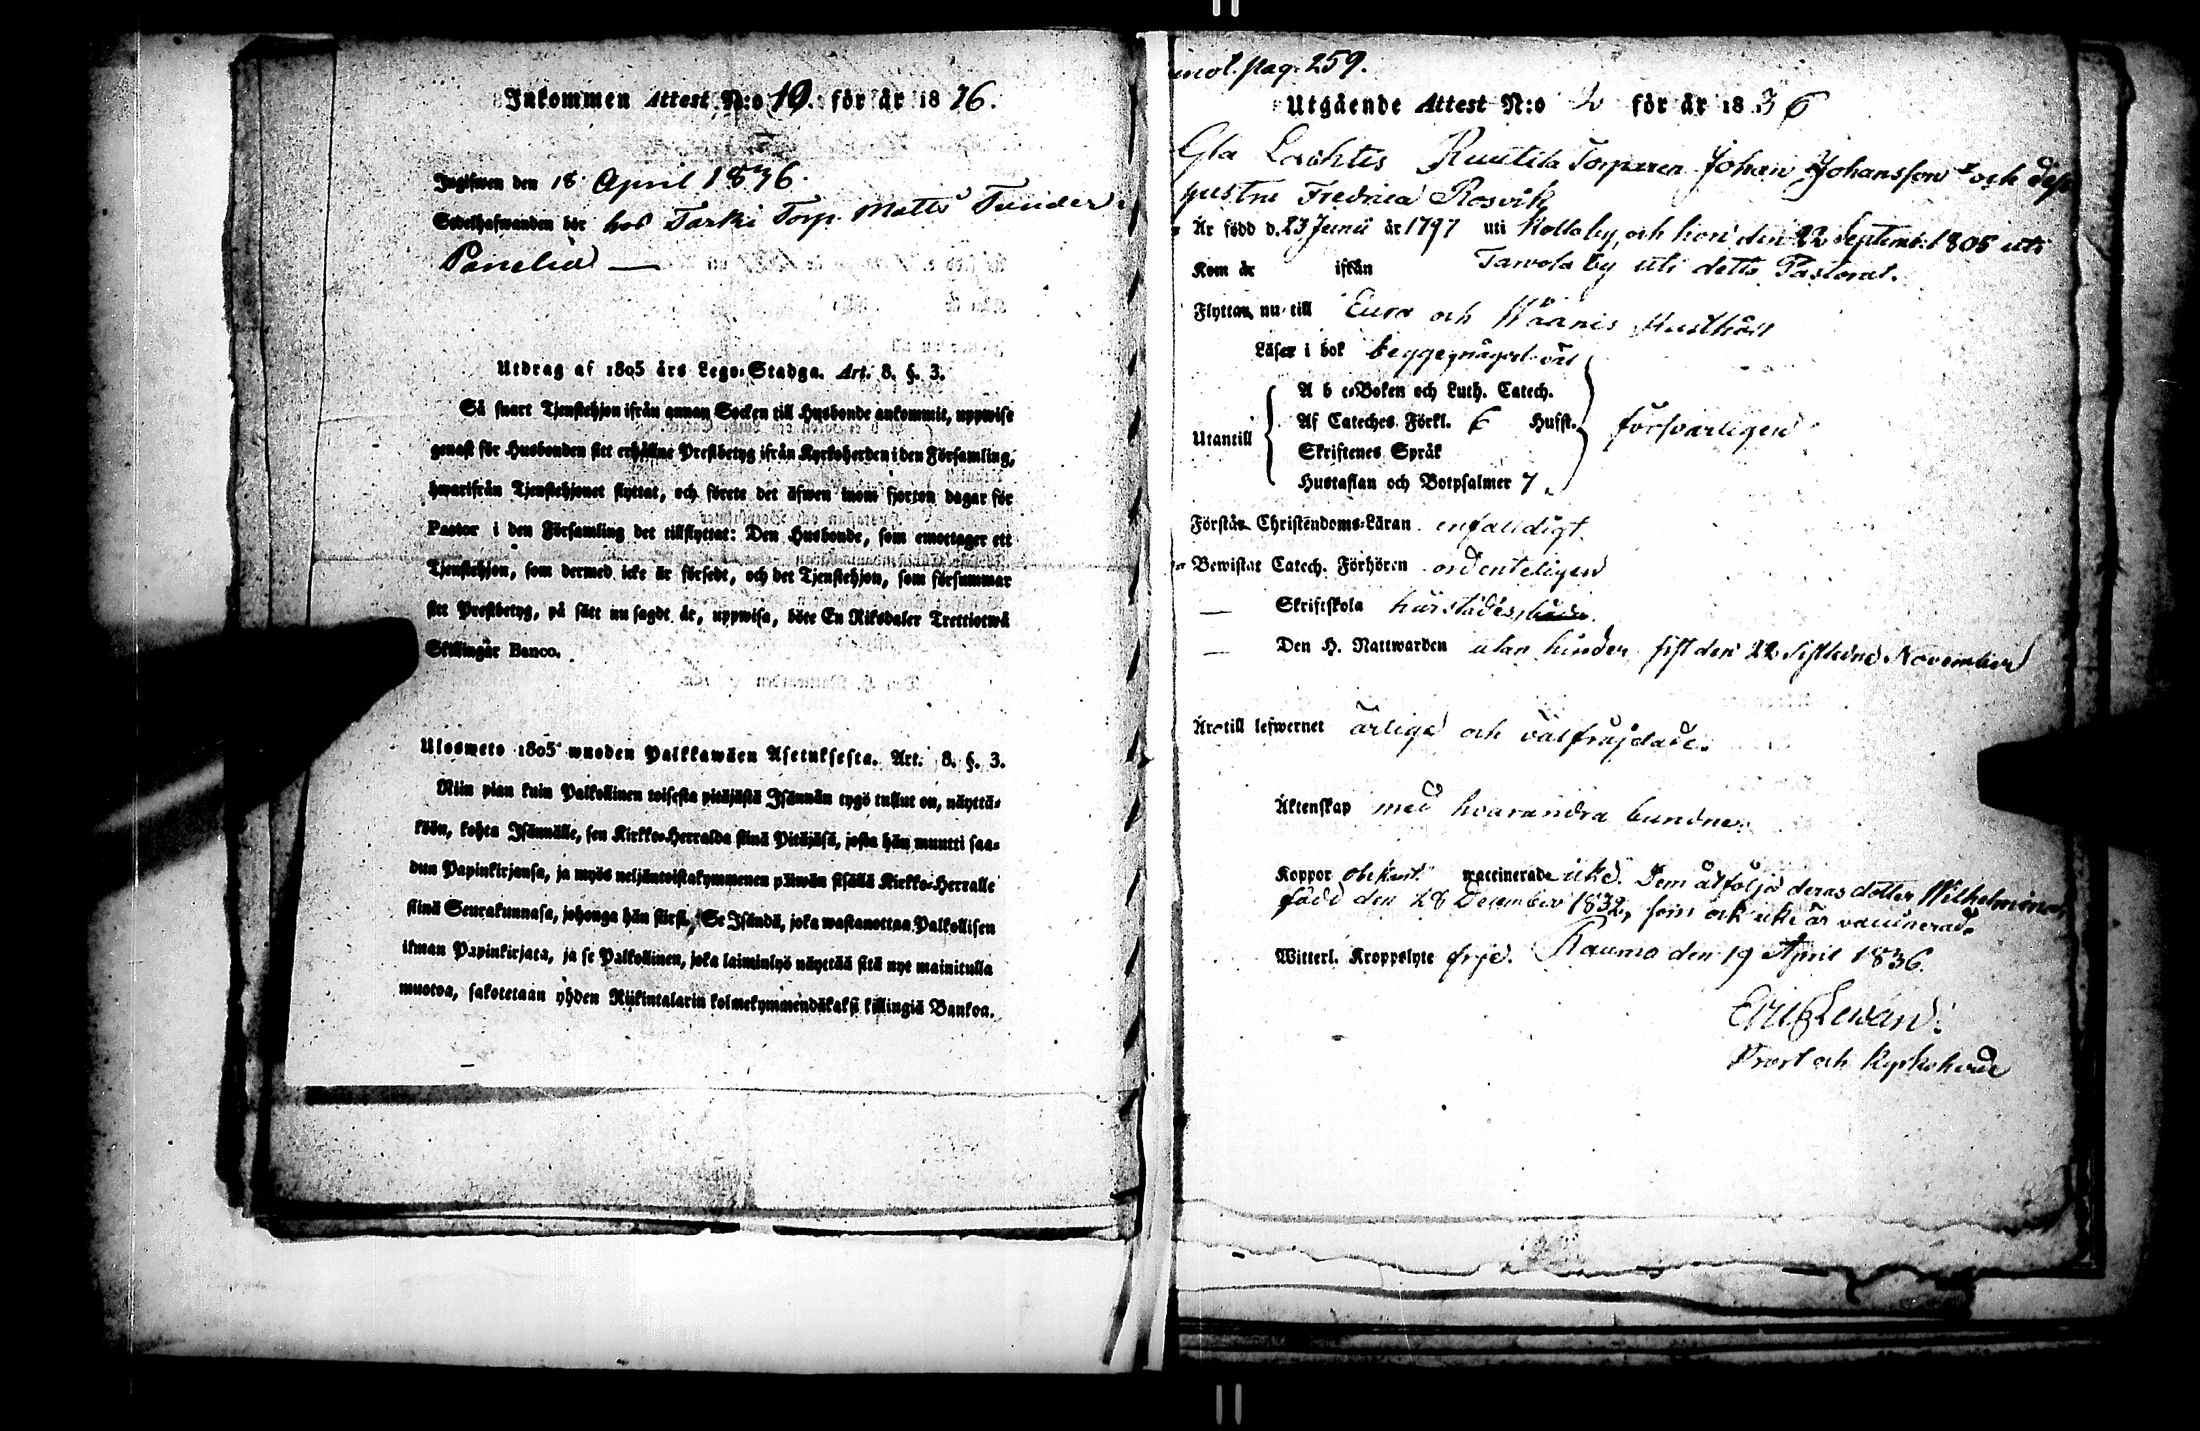 Inkommen Attest N:o 19. för år 1836.
Ingifwen den 18 April 1836.
Sedelhafwanden bor hos Tarki Torp. Matts Tunder
Panelia —
Utdrag af 1805 års Lego-Stadga. Art. 8. §. 3.
Så snart Tjenstehjon ifrån annan Socken till Husbonde ankommit, uppwise
genast för Husbonden sitt erhållne Prestbetyg ifrån Kyrkoherden i den Församling,
hwarifrån Tjenstehjonet flyttat, och förete det äfwen inom fjorton dagar för
Pastor i den Församling det tillflyttat: Den Husbonde, som emottager ett
Tjenstehjon, som dermed icke är försedt, och det Tjenstehjon, som försummar
sitt Prestbetyg, på sätt nu sagdt är, uppwisa, böte En Riksdaler Trettiotwå
Skillingar Banco.
Ulosweto 1805 wuoden Palkkawäen Asetuksesta. Art. 8. §. 3.
Niin pian kuin Palkollinen toisesta pitäjästä Isännän tygö tullut on, näyttä-
köön, kohta Isännälle, sen Kirkko-Herralda siinä Pitäjäsä, josta hän muutti saa-
dun Papinkirjansa, ja myös neljäntoistakymmenen päiwän sisällä Kirkko-Herralle
siinä Seurakunnasa, johonga hän siirsi, Se Isändä, joka wastanottaa Palkollisen
ilman Papinkirjata, ja se Palkollinen, joka laiminlyö näyttää sitä nyt mainitulla
muotoa, sakotetaan yhden Riikintalarin kolmekymmendäkaksi killingiä Bankoa.
pag. 259.
Utgående Attest N:o 2 för år 1836
Gla Lachtis Ruutila Torparen Johan Johansson och dess
hustru Fredrica Rosvik
Är född d. 23 Junii år 1797 uti Kolla by, och hon den 22 Septemb: 1805 uti
Kom år ifrån Tarvola by uti detta Pastorat.
Flyttar nu till Eura och Wäänis Rusthåll
Läser i bok begge något väl
Utantill A b c-Boken och Luth. Catech.
Af Cateches Förkl. 6 Hufst. försvarligen
Skriftenes Språk
Hustaflan och Botpsalmer 7
Förstår Christendoms-Läran enfaldigt.
Bewistat Catech. Förhören ordenteligen
— Skriftskola härstädes,
— Den H. Nattwarden utan hinder, sist den 22 sistledne November
Äro till lefwernet ärlige och välfräjdade.
Äktenskap med hvarandra bundne.
Koppor obekant waccinerade icke. Dem åtföljer deras dotter Wilhelmina
född den 28 December 1832, som ock icke är vaccinerad.
Witterl. Kroppslyte frije. Raumo den 19 April 1836.
Eric Lewan.
Prost och Kyrkoherde